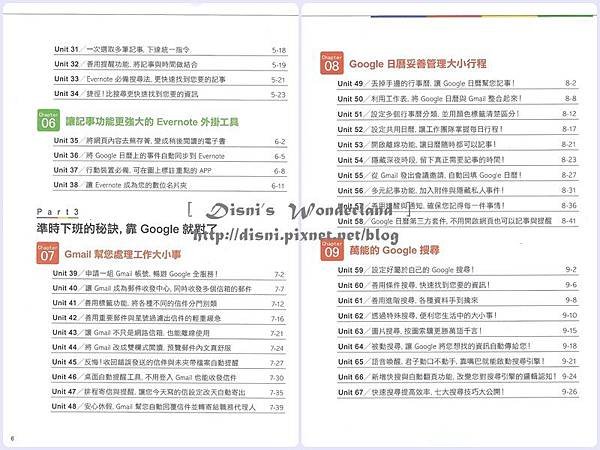 Unit 31／一次選取多筆記事, 下達統一指令. 5-18
Unit 32／善用提醒功能, 將記事與時間做結合 5-19
Unit 33／Evernote 必備搜尋法, 更快速找到您要的記事 5-21
Unit 34／捷徑！比搜尋更快速找到您要的資訊 5-23
Chapter 06 讓記事功能更強大的 Evernote 外掛工具
Unit 35／將網頁內容去蕪存菁, 變成稍後閱讀的電子書 6-2
Unit 36／將 Google 日曆上的事件自動同步到 Evernote 6-5
Unit 37／行動裝置必備, 可在圖上標註重點的 APP 6-8
Unit 38／讓 Evernote 成為您的數位名片夾 6-11
Part 3
準時下班的秘訣, 靠 Google 就對了
Chapter 07 Gmail 幫您處理工作大小事
Unit 39／申請一組 Gmail 帳號, 暢遊 Google 全服務！ 7-2
Unit 40／讓 Gmail 成為郵件收發中心, 同時收發多個信箱的郵件 7-7
Unit 41／善用標籤功能, 將各種不同的信件分門別類 7-12
Unit 42／善用重要郵件與星號過濾出信件的輕重緩急 7-16
Unit 43／讓 Gmail 不只是網路信箱, 也能離線使用 7-21
Unit 44／將 Gmail 改成雙欄式閱讀, 預覽郵件內文真舒服 7-24
Unit 45／反悔！收回錯誤發送的信件與未夾帶檔案自動提醒 7-27
Unit 46／桌面自動提醒工具, 不用登入 Gmail 也能收發信件 7-30
Unit 47／排程寄信與提醒, 讓您今天寫的信設定改天自動寄出 7-35
Unit 48／安心休假, Gmail 幫您自動回覆信件並轉寄給職務代理人 7-39
6
Chapter 08 Google 日曆妥善管理大小行程
Unit 49／丟掉手邊的行事曆, 讓 Google 日曆幫您記事！ 8-2
Unit 50／利用工作表, 將 Google 日曆與 Gmail 整合起來！ 8-8
Unit 51／設定多個行事曆分類, 並用顏色標籤清楚區分！ 8-12
Unit 52／設定共用日曆, 讓工作團隊掌握每日行程！ 8-17
Unit 53／開啟離線功能, 讓日曆隨時都可以記事！ 8-21
Unit 54／隱藏深夜時段, 留下真正需要記事的時間！ 8-23
Unit 55／從 Gmail 發出會議邀請, 自動回填 Google 日曆！ 8-27
Unit 56／多元記事功能, 加入附件與隱藏私人事件！ 8-31
Unit 57／善用提醒與通知, 確保您記得每一件事情！ 8-36
Unit 58／Google 日曆第三方套件, 不用開啟網頁也可以記事與提醒 8-41
Chapter 09 萬能的 Google 搜尋
Unit 59／設定好屬於自己的 Google 搜尋！ 9-2
Unit 60／善用條件搜尋, 快速找到您要的資訊！ 9-6
Unit 61／善用進階搜尋, 各種資料手到擒來 9-8
Unit 62／透過特殊搜尋, 便利您生活中的大小事！ 9-10
Unit 63／圖片搜尋, 按圖索驥更勝萬語千言！ 9-15
Unit 64／被動搜尋, 讓 Google 將您想找的資訊自動傳給您！ 9-18
Unit 65／語音喚醒, 君子動口不動手, 靠嘴巴就能啟動搜尋引擎！ 9-21
Unit 66／新增快搜與自動翻頁功能, 改變您對搜尋引擎的邏輯認知！ 9-24
Unit 67／快速搜尋提高效率, 七大搜尋技巧大公開！ 9-26
[ Disni's Wonderland ]
http://disni.pixnet.net/blog